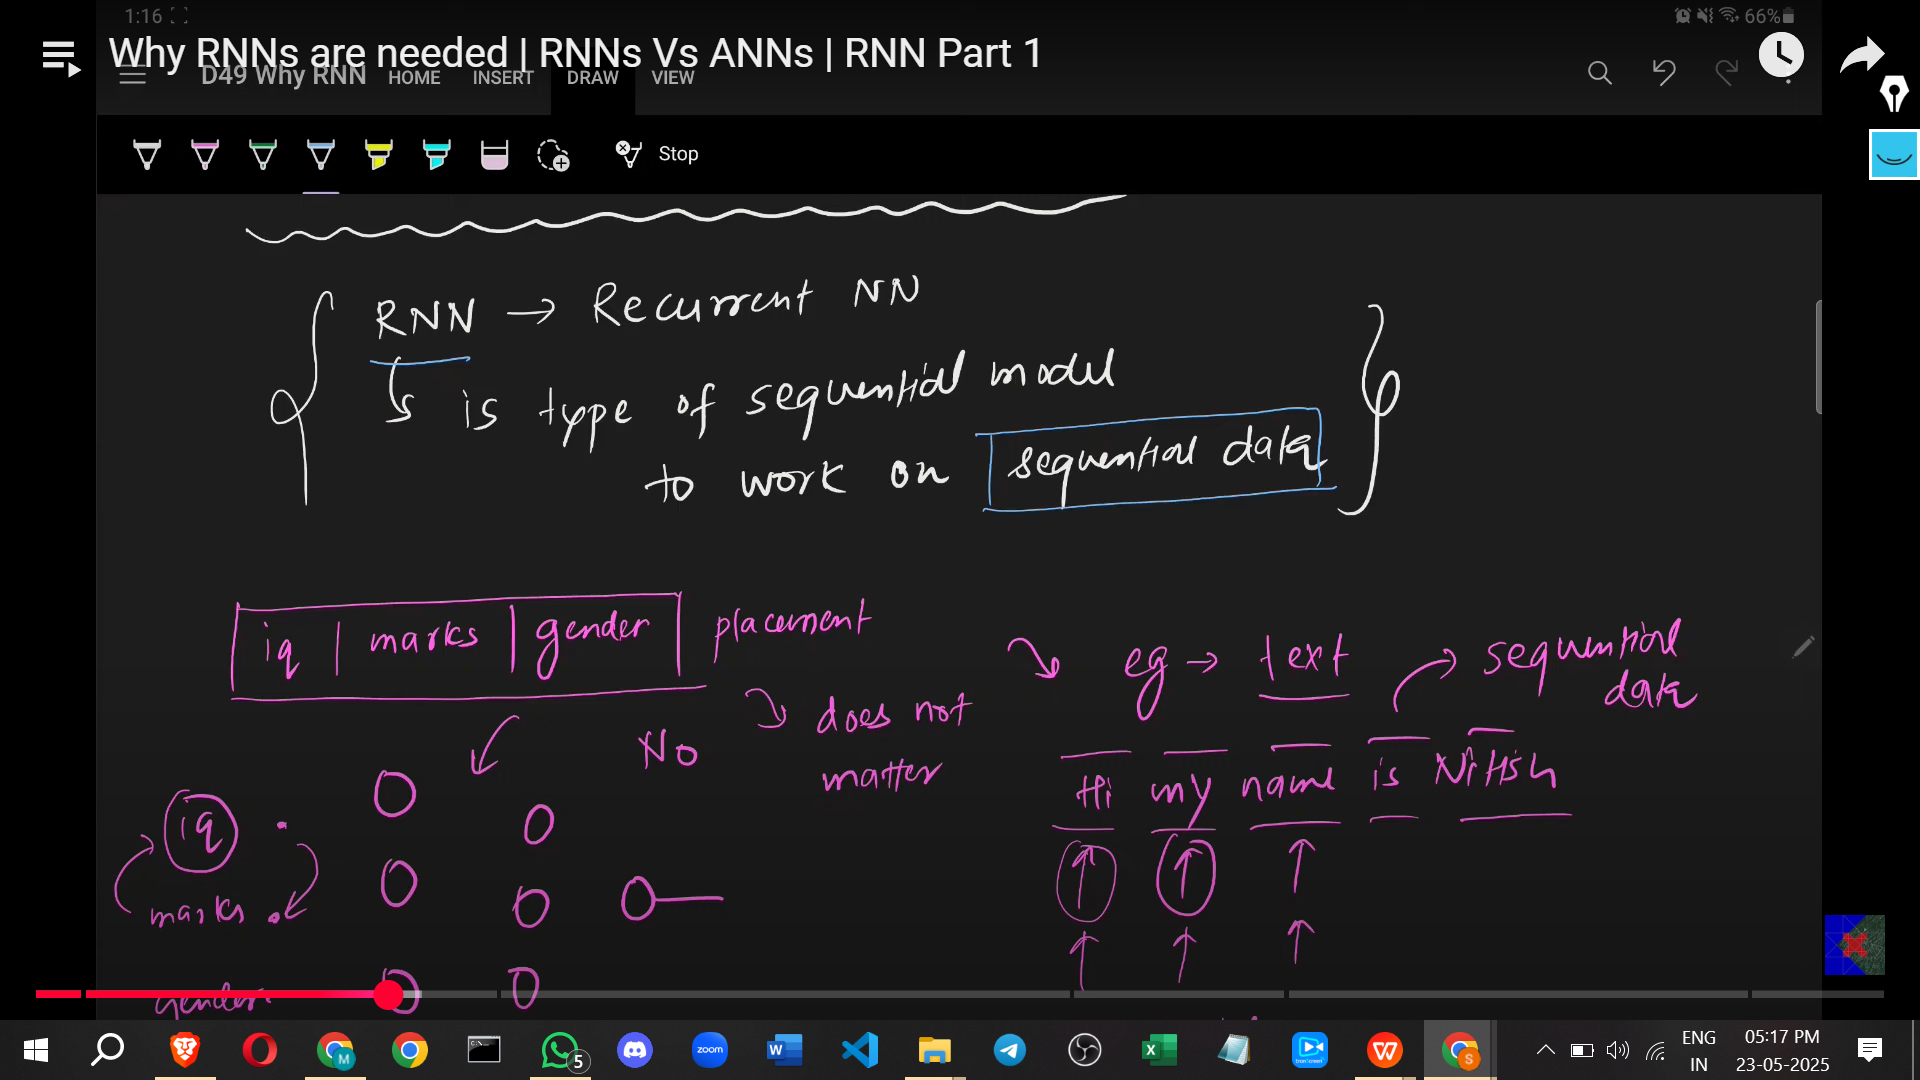 1:16
66%
Why RNNs are needed | RNNs Vs ANNs | RNN Part 1
D49 Why RNN HOME INSERT DRAW VIEW
Stop
RNN → Recurrent NN
is type of sequential model
to work on sequential data
iq | marks | gender | placement
No
does not
matter
iq
marks
gender
eg → text
sequential
data
Hi my name is Nitish
M
5
zoom
S
ENG
IN
05:17 PM
23-05-2025